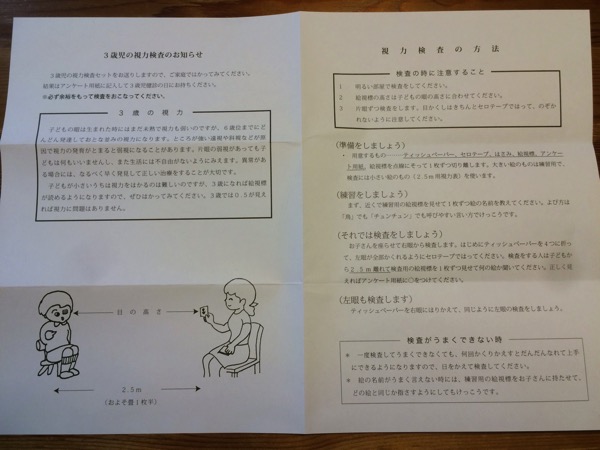 3歳児の視力検査のお知らせ
3歳児の視力検査セットをお送りしますので、ご家庭ではかってみてください。
結果はアンケート用紙に記入して3歳児健診の日にお持ちください。
※必ず余裕をもって検査をおこなってください。
3歳の視力
子どもの眼は生まれた時にはまだ未熟で視力も弱いのですが、6歳位までにど
んどん発達しておとな並みの視力になります。ところが強い遠視や斜視などが原
因で視力の発育がとまると弱視になることがあります。片眼の弱視があっても子
どもは何もいいませんし、また生活には不自由がないようにみえます。異常があ
る場合には、なるべく早く発見して正しい治療をすることが大切です。
子どもが小さいうちは視力をはかるのは難しいのですが、3歳になれば絵視標
が読めるようになりますので、ぜひはかってみてください。3歳では0.5が見え
れば視力に問題はありません。
目の高さ
2.5m
(およそ畳1枚半)
視力検査の方法
検査の時に注意すること
1 明るい部屋で検査をしてください。
2 絵視標の高さは子どもの眼の高さに合わせてください。
3 片眼ずつ検査します。目かくしはきちんとセロテープではって、のぞか
れないように注意してください。
(準備をしましょう)
・ 用意するもの……ティッシュペーパー、セロテープ、はさみ、絵視標、アンケー
ト用紙、絵視標を点線にそって1枚ずつ切り離します。大きい絵のものは練習用で、
検査には小さい絵のもの(2.5m用視力表)を使います。
(練習をしましょう)
まず、近くで練習用の絵視標を見せて1枚ずつ絵の名前を教えてください。よび方は
「鳥」でも「チュンチュン」でも呼びやすい言い方でけっこうです。
(それでは検査をしましょう)
お子さんを座らせて右眼から検査します。はじめにティッシュペーパーを4つに折っ
て、左眼が全部かくれるようにセロテープではってください。検査をする人は子どもか
ら2.5m離れて検査用の絵視標を1枚ずつ見せて何の絵か聞いてください。正しく見
えればアンケート用紙に○をつけてください。
(左眼も検査します)
ティッシュペーパーを右眼にはりかえて、同じように左眼の検査をしましょう。
検査がうまくできない時
* 一度検査してうまくできなくても、何回かくりかえすとだんだんなれて上手
にできるようになりますので、日をかえて検査してください。
* 絵の名前がうまく言えない時には、練習用の絵視標をお子さんに持たせて、
どの絵と同じか指さすようにしてもけっこうです。